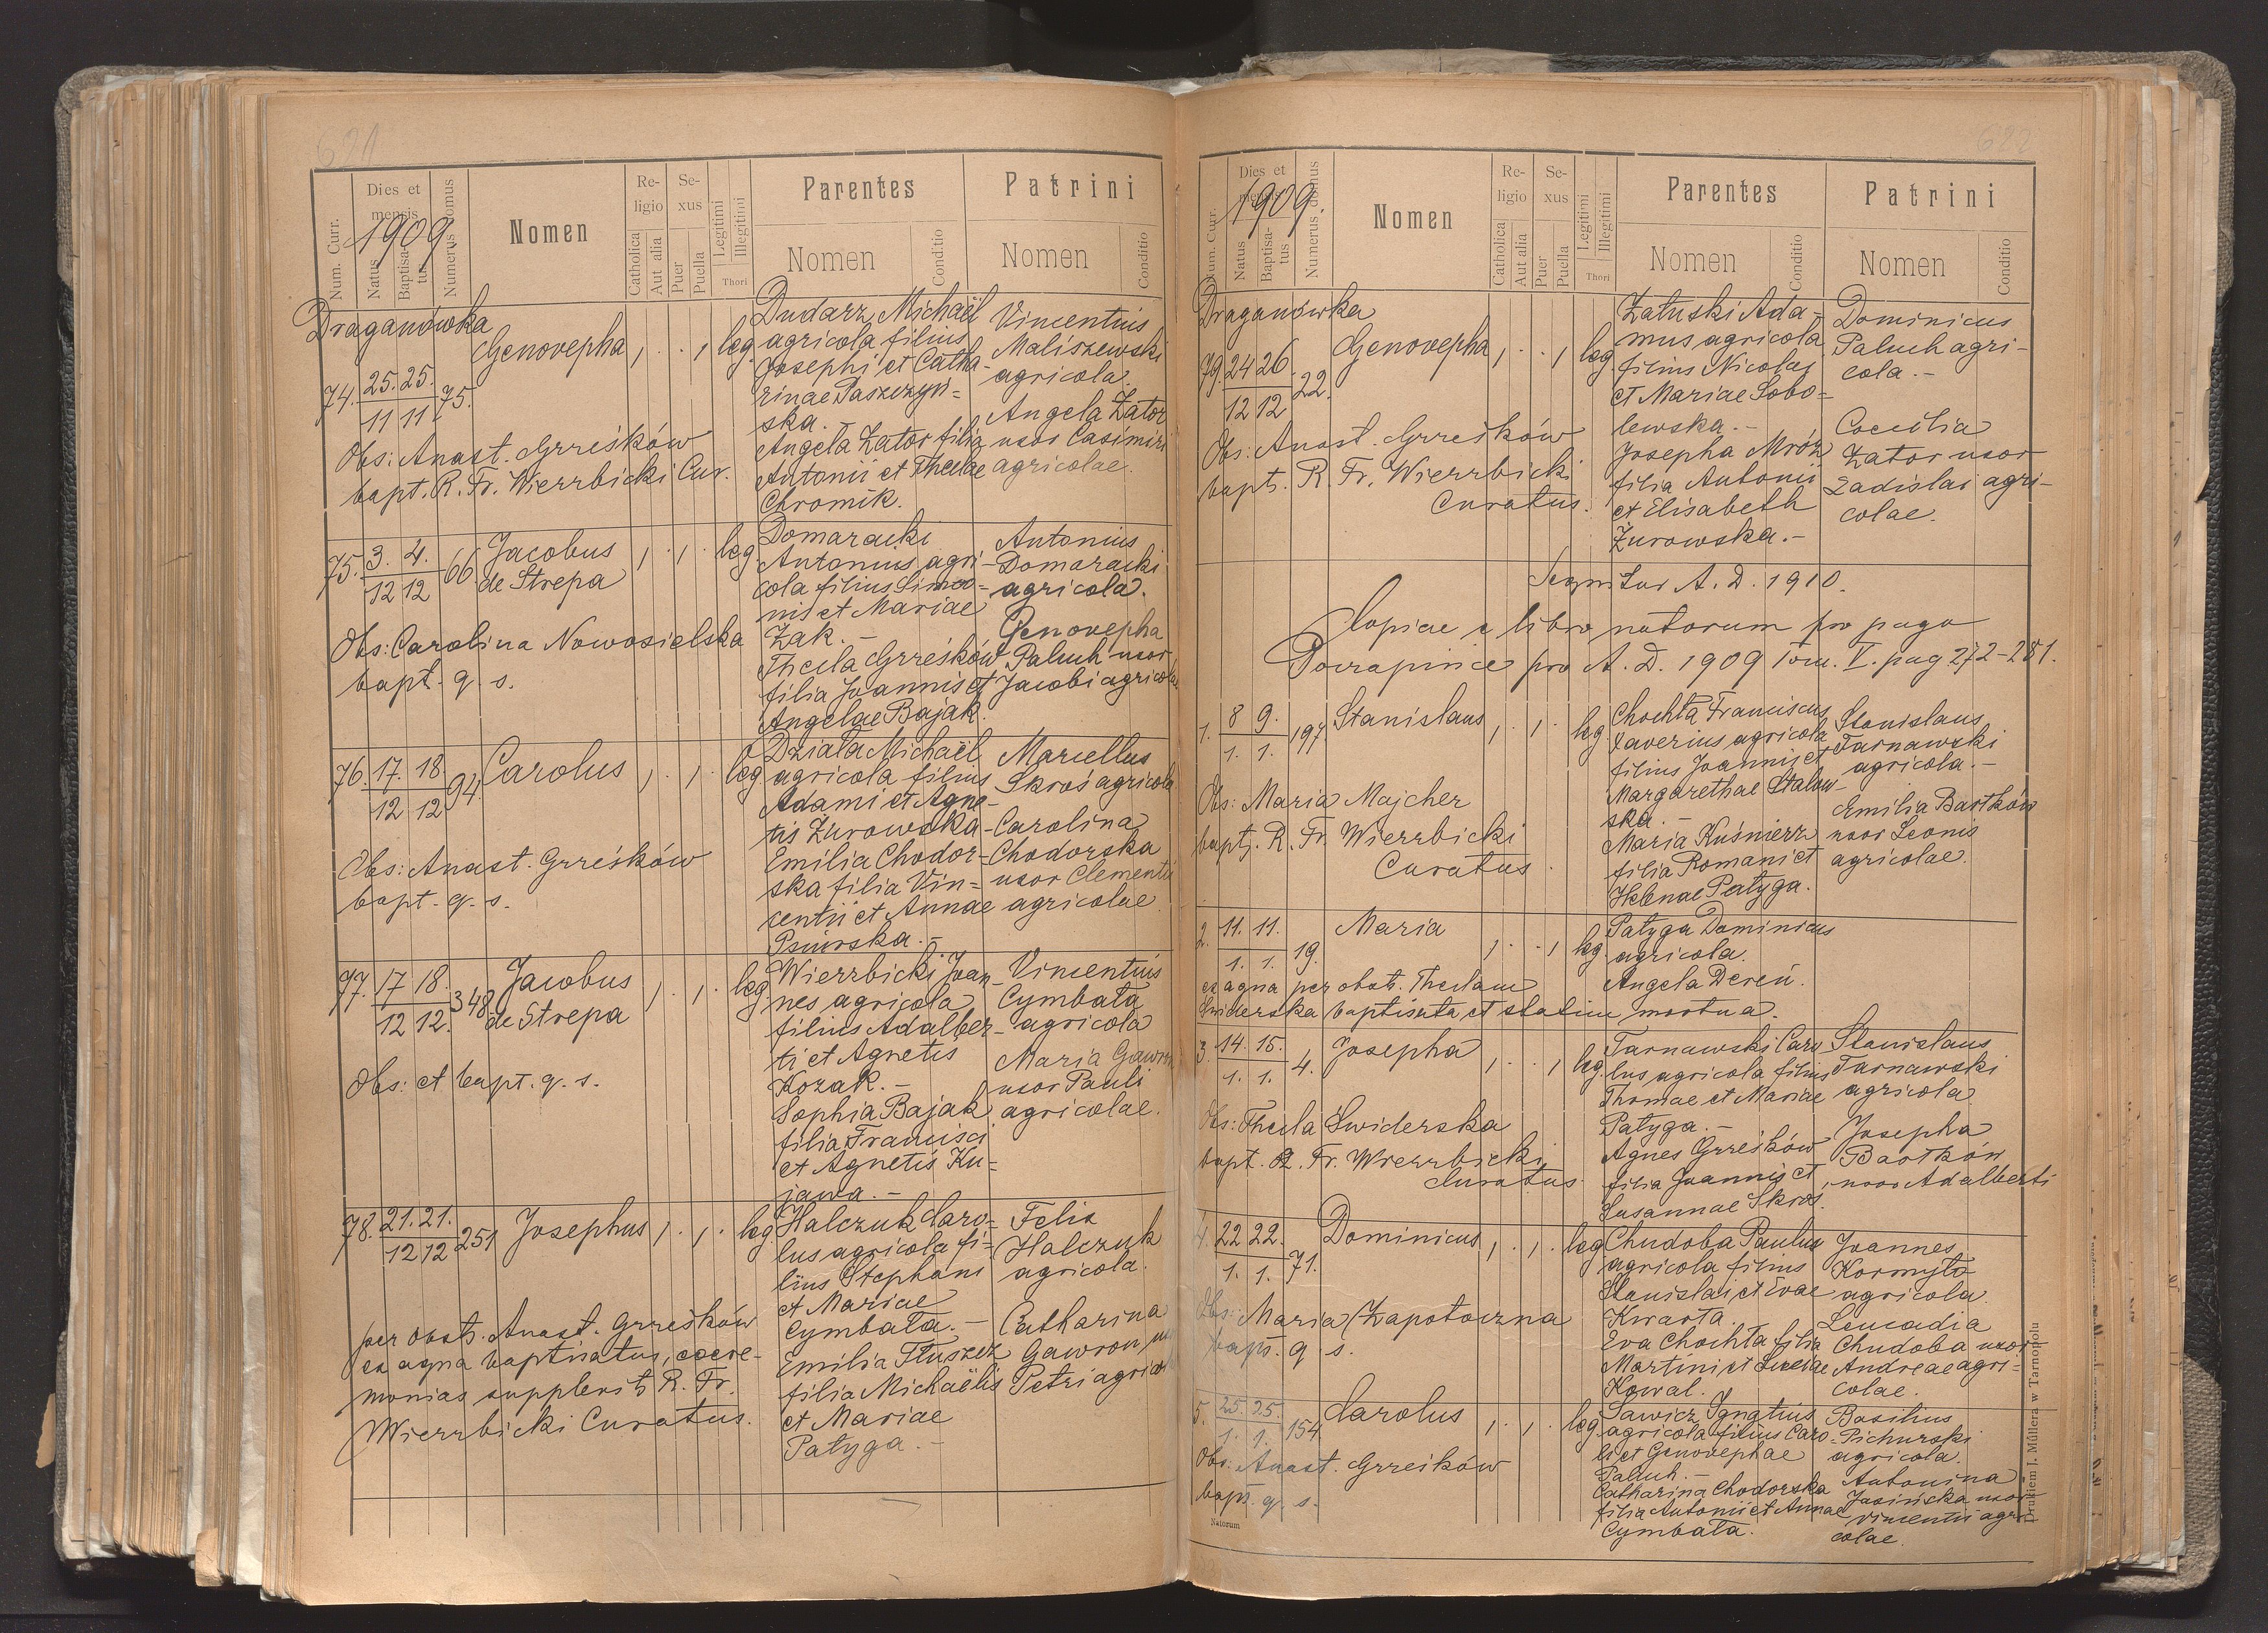 621
Num. Curr.
Dies et mensis
1909
Natus
Baptisatus
Numerus domus
Nomen
Religio
Catholica
Aut alia
Sexus
Puer
Puella
Legitimi
Illegitimi
Thori
Parentes
Nomen
Conditio
Patrini
Nomen
Conditio
Draganówka
74. 25. 25. 75.
11 11
Genovepha , . . , leg
Obs: Anast. Grześków
bapt. R. Fr. Wierzbicki Cur.
Dudarz Michaël
agricola filius
Josephi et Catha-
rinae Paszczyń=
ska. -
Angela Zator filia
Antonii et Theclae
Chromik.
Vincentius
Maliszewski
agricola.
Angela Zator
uxor Casimiri
agricolae.
75. 3. 4. 66
12 12
Jacobus
de Strepa
, . , . leg
Obs: Carolina Nowosielska
bapt. q. s.
Domaracki
Antonius agri-
cola filius Simeo=
nis et Mariae
Żak. -
Thecla Grześków
filia Joannis et
Angelae Bajak.
Antonius
Domaracki
agricola.
Genovepha
Paluch uxor
Jacobi agricolae
76. 17. 18. 94.
12 12
Carolus , . , . leg
Obs: Anast. Grześków
bapt. q. s.
Działa Michaël
agricola filius
Adami et Agne-
tis Żurowska -
Emilia Chodor=
ska filia Vin=
centii et Annae
Psiurska. -
Marcellus
Skroś agricola
Carolina
Chodorska
uxor Clementii
agricolae
77. 17 18. 348
12 12.
Jacobus
de Strepa
, . , . leg
Obs: et bapt. q. s.
Wierzbicki Joan
nes agricola
filius Adalber-
ti et Agnetis
Kozak. -
Sophia Bajak
filia Francisci
et Agnetis Ku=
jawa. -
Vincentius
Cymbała
agricola
Maria Gawron
uxor Pauli
agricolae.
78. 21. 21. 251
12 12
Josephus , . , . leg
per obst. Anast. Grześków
ex aqua baptisatus, coere-
monias supplevit R. Fr.
Wierzbicki Curatus.
Halczuk Caro=
lus agricola fi-
lius Stephani
et Mariae
Cymbała. -
Emilia Tłuszcz
filia Michaëlis
et Mariae
Patyga. -
Felix
Halczuk
agricola.
Catharina
Gawron
Petri agricol
622
Num. Curr.
Dies et mensis
1909.
Natus
Baptisatus
Numerus domus
Nomen
Religio
Catholica
Aut alia
Sexus
Puer
Puella
Legitimi
Illegitimi
Thori
Parentes
Nomen
Conditio
Patrini
Nomen
Conditio
Draganówka
79. 24 26. 22.
12 12
Genovepha , . . , leg.
Obs: Anast. Grześków
bapt. R. Fr. Wierzbicki
Curatus.
Załuski Ada-
mus agricola
filius Nicolai
et Mariae Sobo=
lewska. -
Josepha Mróz
filia Antonii
et Elisabeth
Żurowska. -
Dominicus
Paluch agri-
cola. -
Coecilia
Zator uxor
Ladislai agri-
colae.
Sequitur A. D. 1910.
Copiae e libro natorum pro pago
Poczapińce pro A. D. 1909 Tom. V. pag 272-281.
1. 8 9. 197
1. 1.
Stanislaus , . , . leg.
Obs: Maria Majcher
bapt. R. Fr. Wierzbicki
Curatus.
Chochta Franciscus
Xaverius agricola
filius Joannis et
Margarethae Stalow-
ska. -
Maria Kuśnierz
filia Romani et
Helenae Patyga.
Stanislaus
Tarnawski
agricola. -
Emilia Bartków
uxor Leonis
agricolae.
2. 11. 11. 19.
1. 1.
Maria , . . , leg.
ex aqua per obst. Theclam
Świderska baptisata et statim mortua.
Patyga Dominicus
agricola.
Angela Dereń.
3. 14. 15. 4.
1. 1.
Josepha , . . , leg.
Obs: Thecla Świderska
bapt. R. Fr. Wierzbicki
Curatus
Tarnawski Caro
lus agricola filius
Thomae et Mariae
Patyga. -
Agnes Grześków
filia Joannis et
Susannae Skroś.
Stanislaus
Tarnawski
agricola
Josepha
Bartków
uxor Adalberti
4. 22 22. 71.
1. 1.
Dominicus , . , . leg
Obs: Maria Zapotoczna
bapt. q. s.
Chudoba Paulus
agricola filius
Stanislai et Evae
Kwarta.
Eva Chochta filia
Martini et Luciae
Kowal.
Joannes
Kormyło
agricola.
Leucadia
Chudoba uxor
Andreae agri=
colae.
5. 25. 25. 154
1. 1.
Carolus , . , . leg.
Obs: Anast. Grześków
bapt. q. s.
Sawicz Ignatius
agricola filius Caro-
li et Genovephae
Paluch. -
Catharina Chodorska
filia Antonii et Annae
Cymbała.
Basilius
Pichurski
agricola.
Antonina
Jasińska uxor
Vincentii agri
colae.
Natorum
Drukiem J. Müllera w Tarnopolu